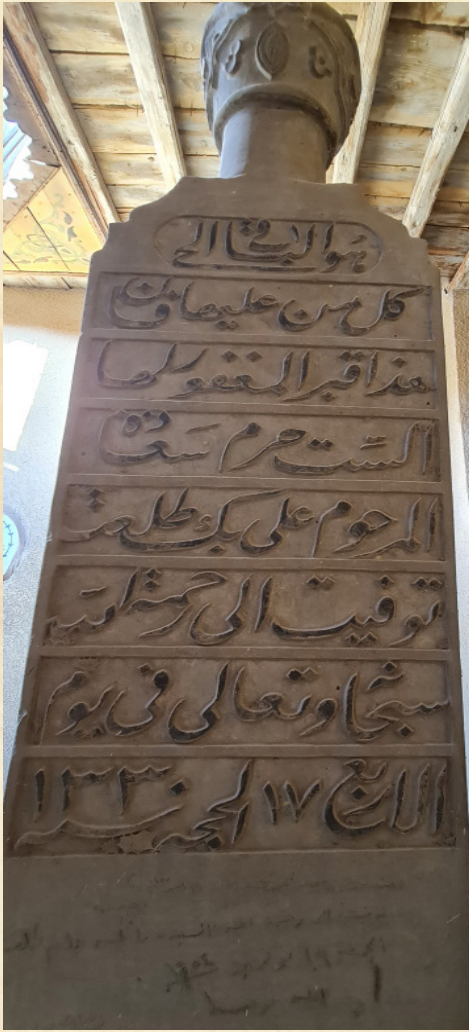 هو الباقي الحي
كل من عليها فان
هذا قبر المغفور لها
الست حرم سعادة
المرحوم علي بك طلعت
توفيت الى رحمة الله
سبحانه وتعالى في يوم
الاربع ١٧ الحجه سنة ١٣٣٠